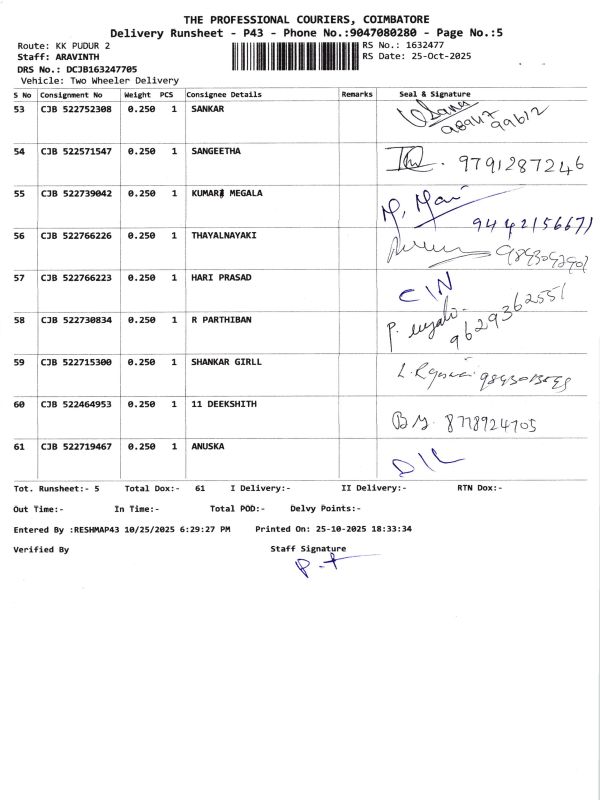 THE PROFESSIONAL COURIERS, COIMBATORE
Delivery Runsheet - P43 - Phone No.:9047080280 - Page No.:5
Route: KK PUDUR 2 RS No.: 1632477
Staff: ARAVINTH RS Date: 25-Oct-2025
DRS No.: DCJB163247705
Vehicle: Two Wheeler Delivery
S No Consignment No Weight PCS Consignee Details Remarks Seal & Signature
53 CJB 522752308 0.250 1 SANKAR
98947 99612
54 CJB 522571547 0.250 1 SANGEETHA
9791287246
55 CJB 522739042 0.250 1 KUMAR MEGALA M. Mari
9442156671
56 CJB 522766226 0.250 1 THAYALNAYAKI
57 CJB 522766223 0.250 1 HARI PRASAD CIN
58 CJB 522730834 0.250 1 R PARTHIBAN P.
9629362551
59 CJB 522715300 0.250 1 SHANKAR GIRLL L.
60 CJB 522464953 0.250 1 11 DEEKSHITH 8778924705
61 CJB 522719467 0.250 1 ANUSKA D/L
Tot. Runsheet:- 5 Total Dox:- 61 I Delivery:- II Delivery:- RTN Dox:-
Out Time:- In Time:- Total POD:- Delvy Points:-
Entered By :RESHMAP43 10/25/2025 6:29:27 PM Printed On: 25-10-2025 18:33:34
Verified By Staff Signature